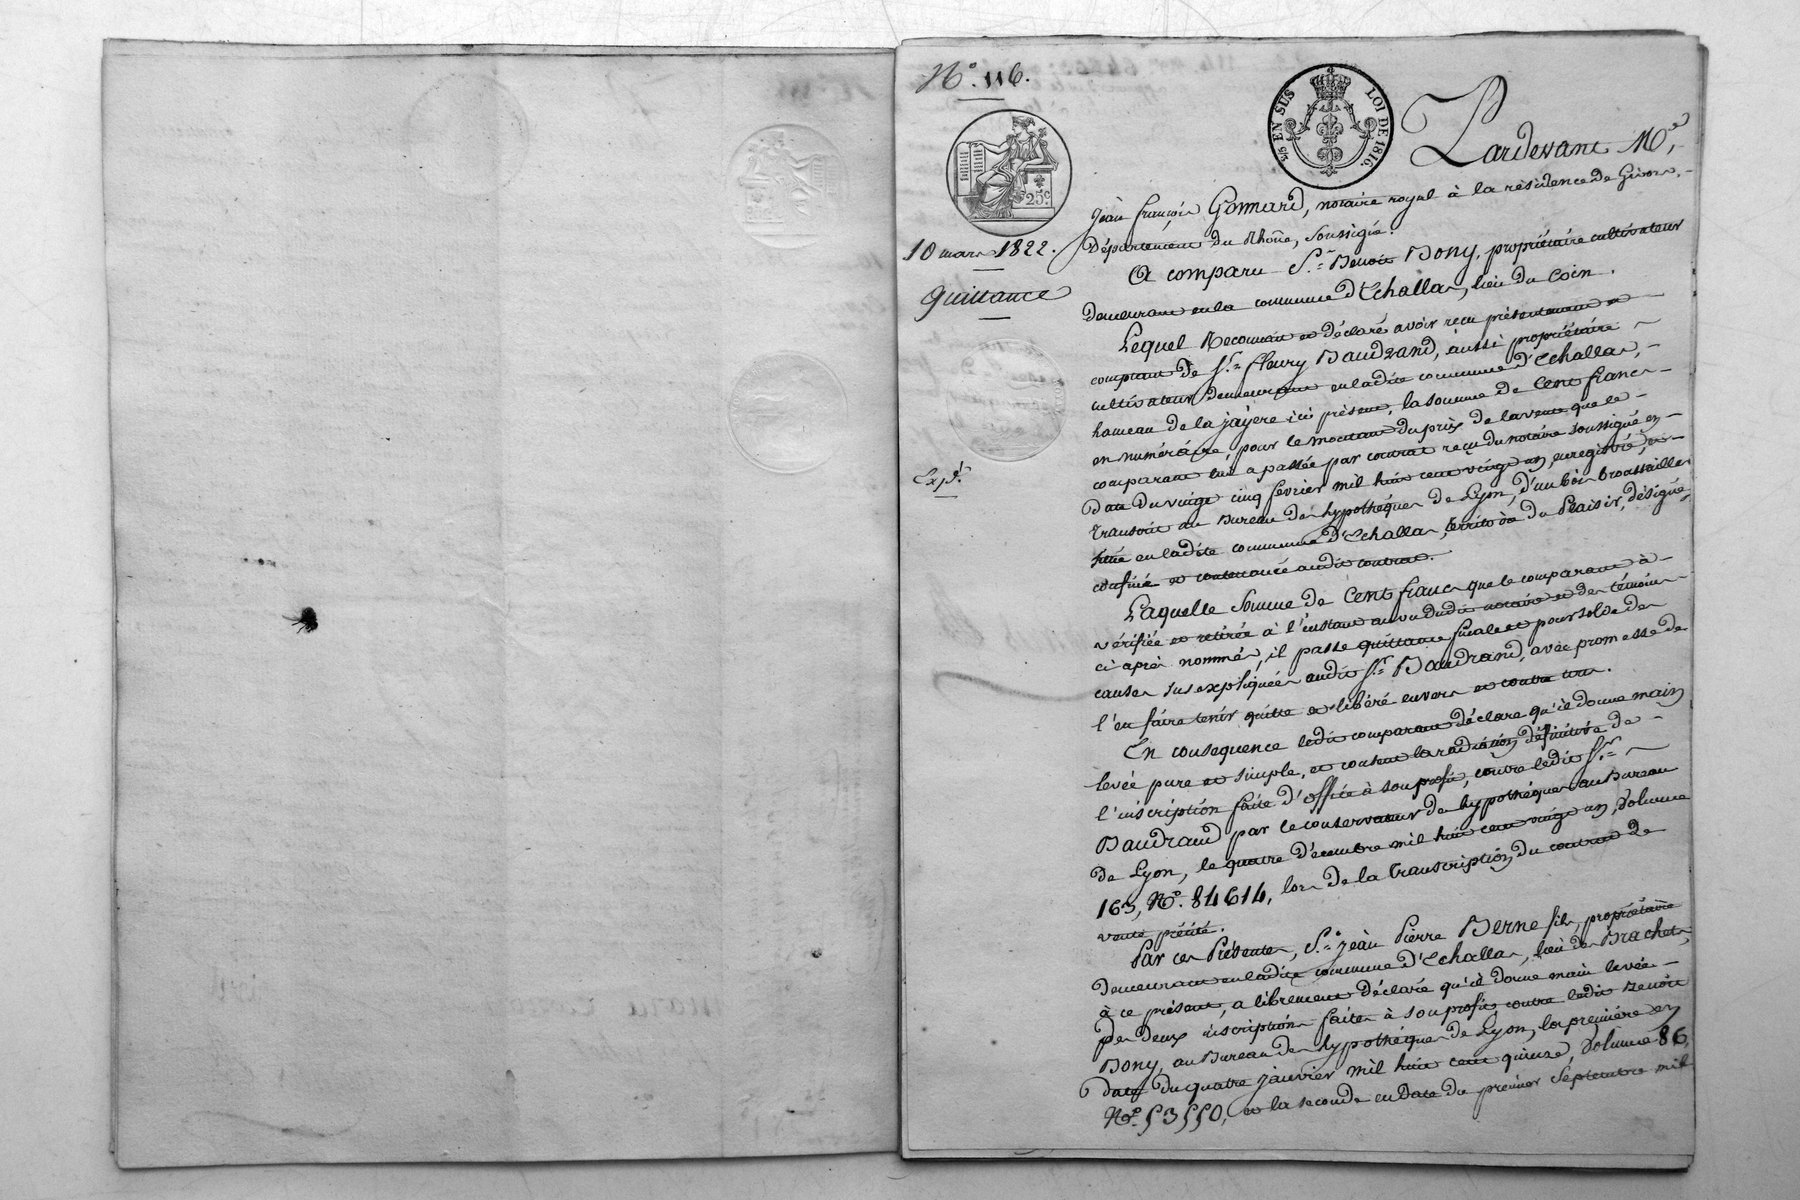 N.° 116.
5/5 EN SUS LOI DE 1816.
25c
10 mars 1822.
Quittance
Exp.é
Pardevant M.e
Jean françois Gonnard, notaire royal à la résidence de Givors,
Département du Rhône, soussigné.
A comparu S.r Benoit Bony, propriétaire cultivateur
demeurant en la commune d'Echallas, lieu du Coin.
Lequel Reconnait et déclare avoir reçu présentement et
comptant de S.r fleury Baudrand, aussi propriétaire
cultivateur demeurant en ladite commune d'Echallas,
hameau de la jayere ici présent, la somme de Cent francs
en numéraire, pour le montant du prix de la vente que le
comparant lui a passée par contrat reçu du notaire soussigné en
date du vingt cinq février mil huit cent vingt un, enregistré, et
transcrit au Bureau des hypothéques de Lyon, d'un bois broussailles
situé en ladite commune d'Echallas, territoire du Plaisir, désigné,
confiné et contenancé audit contrat.
Laquelle somme de Cent francs que le comparant à
vérifiée et retirée à l'instant au vu dudit notaire et des témoins
ci après nommés, il passe quittance finale et pour solde des
causes sus expliquées audit S.r Baudrand, avec promesse de
l'en faire tenir quitte et libéré envers et contre tous.
En consequence ledit comparant déclare qu'il donne main
levée pure et simple, et consent la radiation définitive de
l'inscription faite d'office à son profit, contre ledit S.r
Baudrand par le conservateur des hypothéques au Bureau
de Lyon, le quatre décembre mil huit cent vingt un, volume
163, N.° 84614, lors de la transcription du contrat de
vente précité.
Par ces Présentes, S.r jean Pierre Berne fils, propriétaire
demeurant en ladite commune d'Echallas, lieu des Brachets,
à ce présent, a librement déclaré qu'il donne main levée
des deux inscriptions faites à son profit, contre ledit Benoit
Bony, au Bureau des hypothéques de Lyon, la première en
date du quatre janvier mil huit cent quinze, volume 86,
N.° 53550, et la seconde en date du premier septembre mil